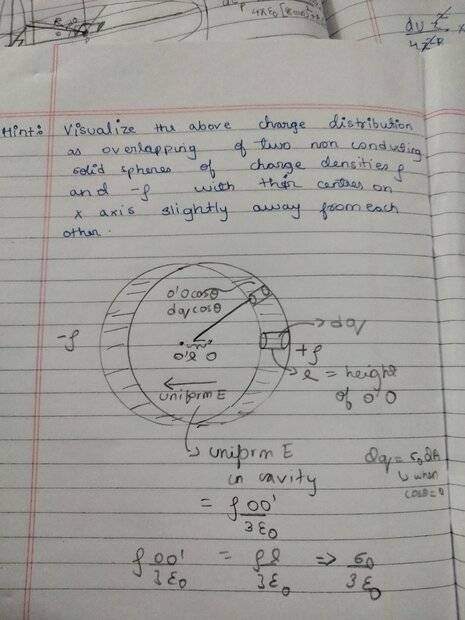 4πε₀
Hint: Visualize the above charge distribution
as overlapping of two non conducting
solid spheres of charge densities ρ
and -ρ with their centres on
x axis slightly away from each
other.
O'Ocosθ
dqcosθ
-ρ
dq
O' l O
+ρ
l = height
of O'O
uniform E
uniform E
in cavity
= ρ OO' / 3ε₀
dq = σ₀dA
when
cosθ=0
ρ OO' / 3ε₀ = ρl / 3ε₀ => σ₀ / 3ε₀